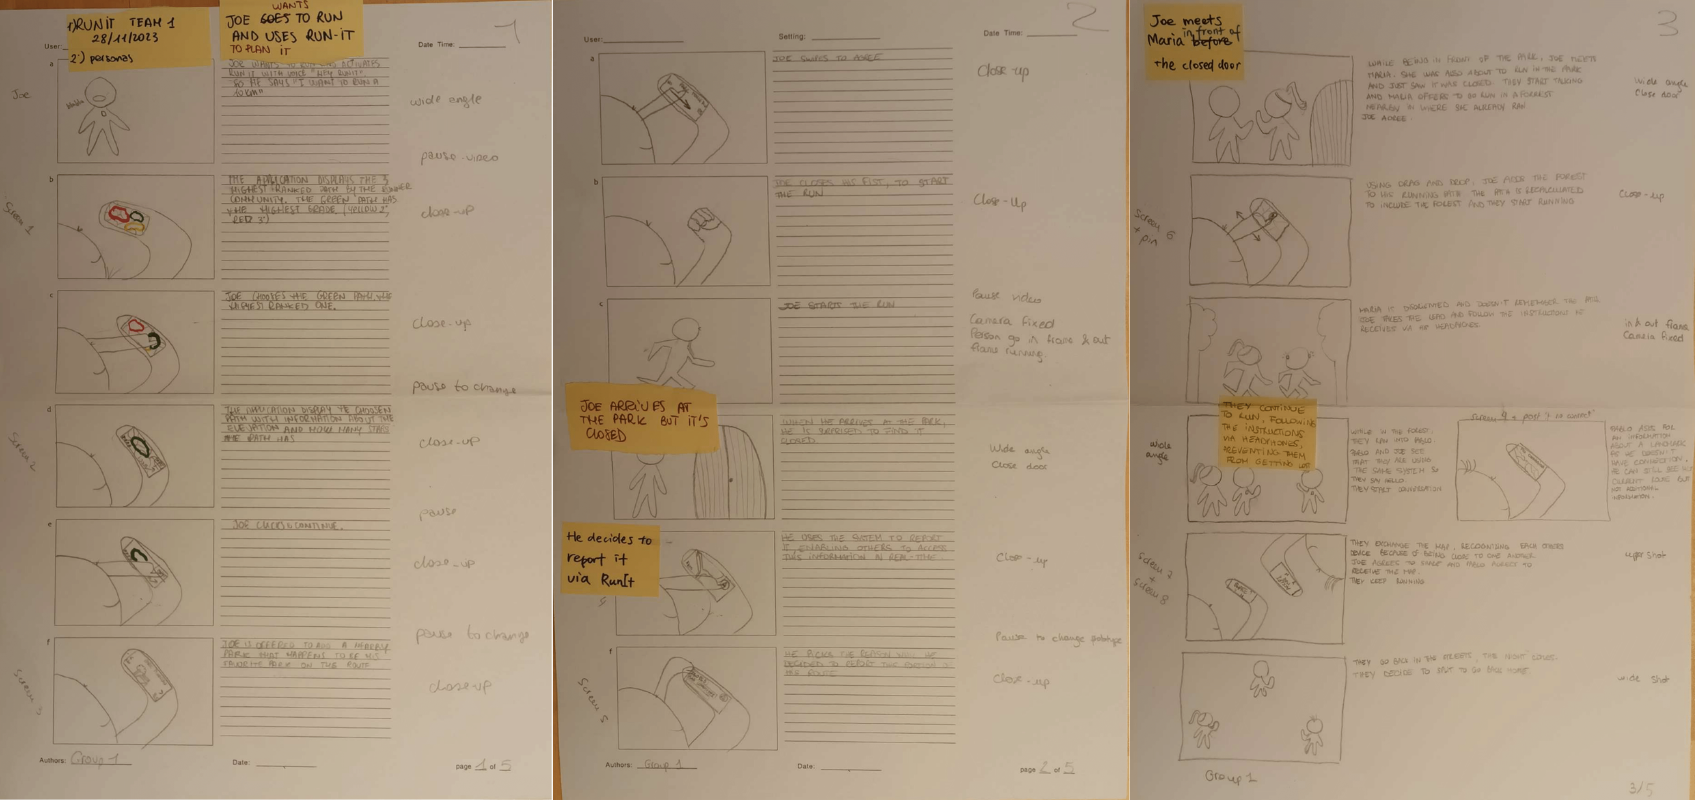 RUNIT TEAM 1
28/11/2023
2') personas
WANTS
JOE GOES TO RUN
AND USES RUN-IT
TO PLAN IT
User:
Date Time:
1
Joe
a
JOE WANTS TO RUN ACTIVATES
RUNIT WITH VOICE "HEY RUNIT"
HE SAYS "I WANT TO RUN A
10 KM"
wide angle
pause-video
Screen 1
b
THE APPLICATION DISPLAYS THE 3
HIGHEST RANKED PATH BY THE RUNNER
COMMUNITY. THE GREEN PATH HAS
THE HIGHEST GRADE (YELLOW 2°,
RED 3°)
close-up
c
JOE CHOOSES THE GREEN PATH, THE
HIGHEST RANKED ONE.
close-up
pause to change
Screen 2
d
THE APPLICATION DISPLAY THE CHOOSEN
PATH WITH INFORMATION ABOUT THE
ELEVATION AND HOW MANY STARS
THE PATH HAS
close-up
pause
e
JOE CLICKS CONTINUE.
close-up
pause to change
Screen
f
JOE IS OFFERED TO ADD A NEARBY
PARK THAT HAPPENS TO BE HIS
FAVORITE PARK ON THE ROUTE
close-up
Authors: Group 1
Date:
page 1 of 5
User:
Setting:
Date Time:
2
a
JOE SWIPES TO AGREE
Close-up
b
JOE CLOSES HIS FIST, TO START
THE RUN
Close-Up
Pause video
c
JOE STARTS THE RUN
Camera Fixed
Person go in frame & out
frame running.
JOE ARRIVES AT
THE PARK BUT IT'S
CLOSED
WHEN HE ARRIVES AT THE PARK,
HE IS SURPRISED TO FIND IT
CLOSED.
Wide angle
Close door
He decides to
report it
via RunIt
HE USES THE SYSTEM TO REPORT
IT, ENABLING OTHERS TO ACCESS
THIS INFORMATION IN REAL-TIME
Close-up
Pause to change prototype
Screen 5
f
HE PICKS THE REASON WHY HE
DECIDED TO REPORT THE
THE ROUTE
Close-up
Authors: Group 1
Date:
page 2 of 5
Joe meets
in front of
Maria before
the closed door
3
WHILE BEING IN FRONT OF THE PARK, JOE MEETS
MARIA. SHE WAS ALSO ABOUT TO RUN IN THE PARK
AND JUST SAW IT WAS CLOSED. THEY START TALKING
AND MARIA OFFERS TO GO RUN IN A FORREST
NEARBY IN WHERE SHE ALREADY RAN
JOE AGREE.
Wide angle
Close door
Screen 6
+ pin
USING DRAG AND DROP, JOE ADDS THE FOREST
TO HIS RUNNING PATH. THE PATH IS RECALCULATED
TO INCLUDE THE FOREST AND THEY START RUNNING
Close-up
MARIA IS DISORIENTED AND DOESN'T REMEMBER THE PATH
JOE TAKES THE LEAD AND FOLLOW THE INSTRUCTIONS HE
RECEIVES VIA HIS HEADPHONES
in & out frame
Camera Fixed
THEY CONTINUE
TO RUN, FOLLOWING
THE INSTRUCTIONS
VIA HEADPHONES,
PREVENTING THEM
FROM GETTING LOST
wide
angle
WHILE IN THE FOREST,
THEY RAN INTO PABLO.
PABLO AND JOE SEE
THAT THEY ARE USING
THE SAME SYSTEM SO
THEY SAY HELLO.
THEY START CONVERSATION
PABLO ASKS FOR
AN INFORMATION
ABOUT A LANDMARK
HE DOESN'T
HAVE CONNECTION.
HE CAN STILL SEE HIS
CURRENT ROUTE BUT
NOT ADDITIONAL
INFORMATION.
Screen 7
+
Screen 8
THEY EXCHANGE THE MAP, RECOGNIZING EACH OTHERS
DEVICE BECAUSE OF BEING CLOSE TO ONE ANOTHER.
JOE AGREES TO SHARE AND PABLO AGREES TO
RECEIVE THE MAP.
THEY KEEP RUNNING
upper shot
THEY GO BACK IN THE STREETS, THE NIGHT COMES.
THEY DECIDE TO SPLIT TO GO BACK HOME.
wide shot
Group 1
3/5